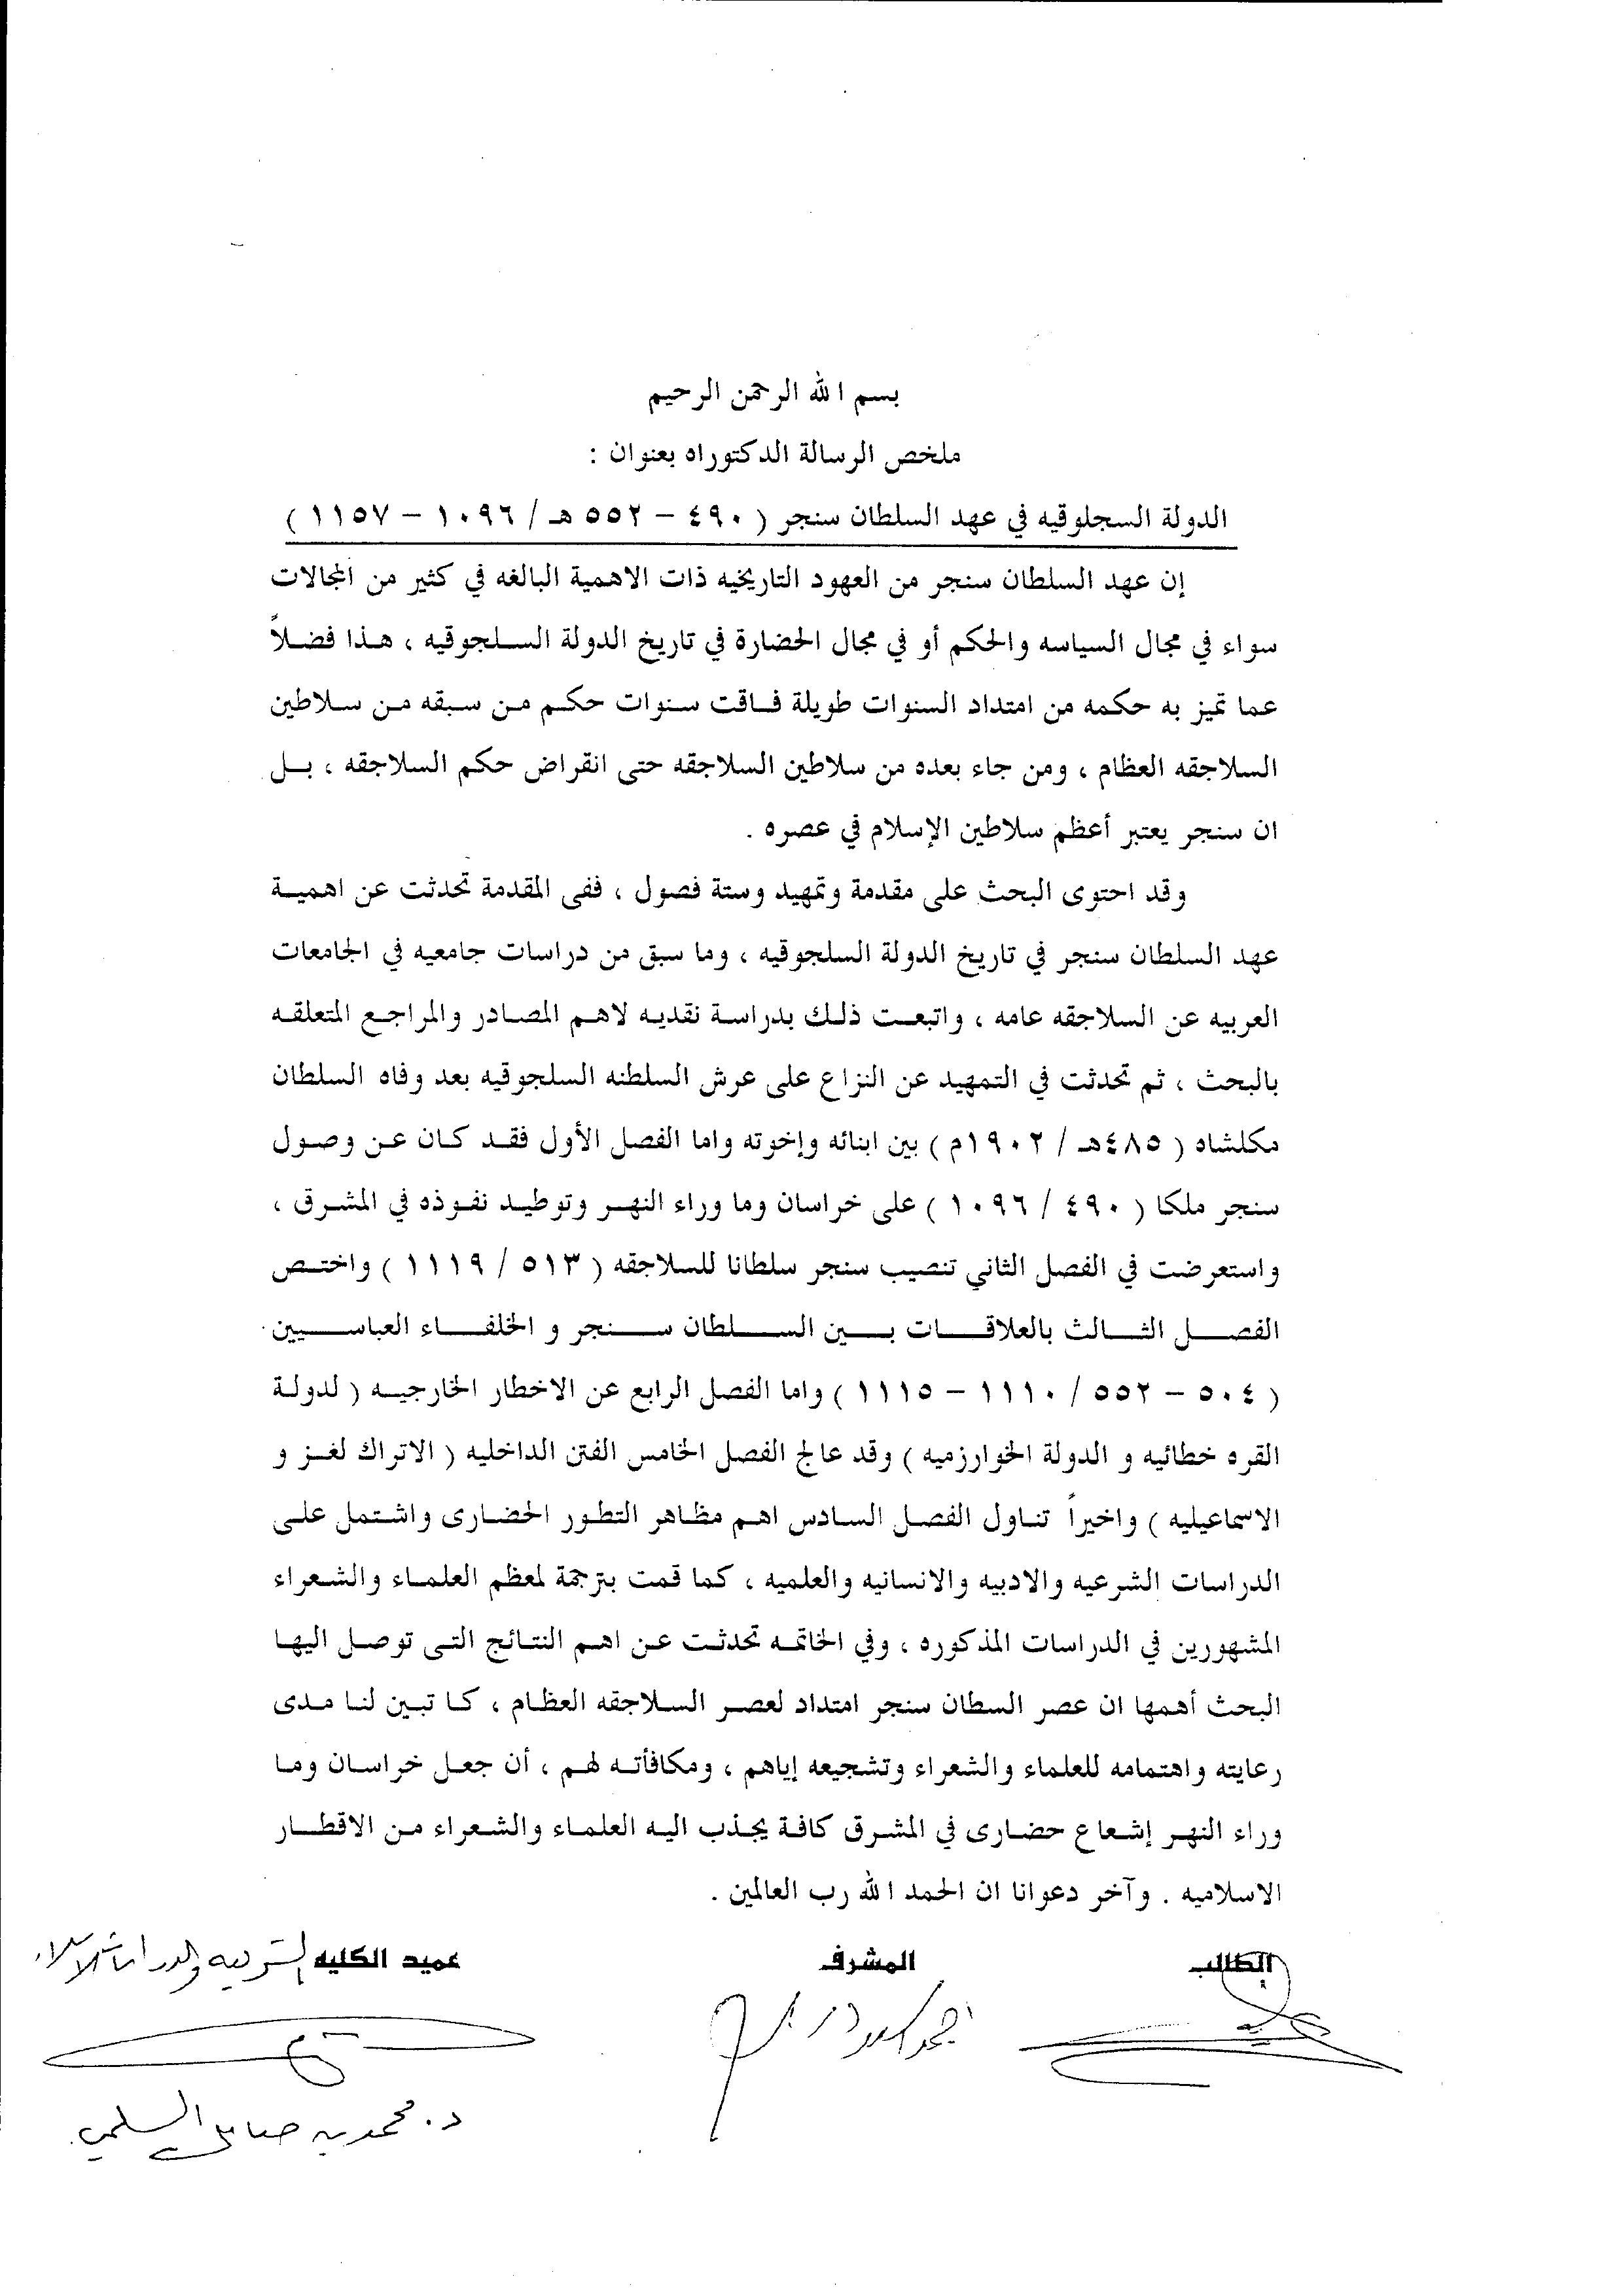 بسم الله الرحمن الرحيم
ملخص الرسالة الدكتوراه بعنوان :
الدولة السجلوقيه في عهد السلطان سنجر ( ٤٩٠ – ٥٥٢ هـ / ١٠٩٦ – ١١٥٧ )
إن عهد السلطان سنجر من العهود التاريخيه ذات الاهمية البالغه في كثير من المجالات
سواء في مجال السياسه والحكم أو في مجال الحضارة في تاريخ الدولة السلجوقيه ، هذا فضلاً
عما تميز به حكمه من امتداد السنوات طويلة فاقت سنوات حكم من سبقه من سلاطين
السلاجقه العظام ، ومن جاء بعده من سلاطين السلاجقه حتى انقراض حكم السلاجقه ، بل
ان سنجر يعتبر أعظم سلاطين الإسلام في عصره .
وقد احتوى البحث على مقدمة وتمهيد وستة فصول ، ففى المقدمة تحدثت عن اهمية
عهد السلطان سنجر في تاريخ الدولة السلجوقيه ، وما سبق من دراسات جامعيه في الجامعات
العربيه عن السلاجقه عامه ، واتبعت ذلك بدراسة نقديه لاهم المصادر والمراجع المتعلقه
بالبحث ، ثم تحدثت في التمهيد عن النزاع على عرش السلطنه السلجوقيه بعد وفاه السلطان
مكلشاه ( ٤٨٥هـ / ١٩٠٢م ) بين ابنائه وإخوته واما الفصل الأول فقد كان عن وصول
سنجر ملكا ( ٤٩٠ / ١٠٩٦ ) على خراسان وما وراء النهر وتوطيد نفوذه في المشرق ،
واستعرضت في الفصل الثاني تنصيب سنجر سلطانا للسلاجقه ( ٥١٣ / ١١١٩ ) واختص
الفصل الثالث بالعلاقات بين السلطان سنجر و الخلفاء العباسيين
( ٥٠٤ – ٥٥٢ / ١١١٠ – ١١١٥ ) واما الفصل الرابع عن الاخطار الخارجيه ( لدولة
القره خطائيه و الدولة الخوارزميه ) وقد عالج الفصل الخامس الفتن الداخليه ( الاتراك لغز و
الاسماعيليه ) واخيراً تناول الفصل السادس اهم مظاهر التطور الحضارى واشتمل على
الدراسات الشرعيه والادبيه والانسانيه والعلميه ، كما قمت بترجمة لمعظم العلماء والشعراء
المشهورين في الدراسات المذكوره ، وفي الخاتمه تحدثت عن اهم النتائج التى توصل اليها
البحث أهمها ان عصر السطان سنجر امتداد لعصر السلاجقه العظام ، كا تبين لنا مدى
رعايته واهتمامه للعلماء والشعراء وتشجيعه إياهم ، ومكافأته لهم ، أن جعل خراسان وما
وراء النهر إشعاع حضارى في المشرق كافة يجذب اليه العلماء والشعراء من الاقطار
الاسلاميه . وآخر دعوانا ان الحمد الله رب العالمين .
الطالب المشرف عميد الكليه الشرعيه والدراسات الاسلاميه
د. محمد بن صامل السلمي